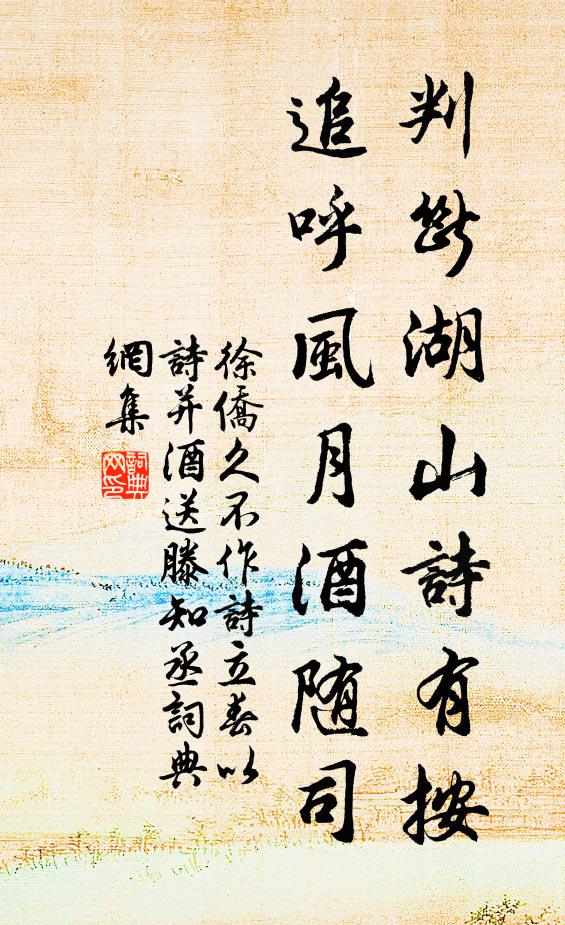 判斷湖山詩有按
追呼風月酒随司
徐僑久不作詩立春以
詩并酒送滕知丞詞典
網集
詞典
网印